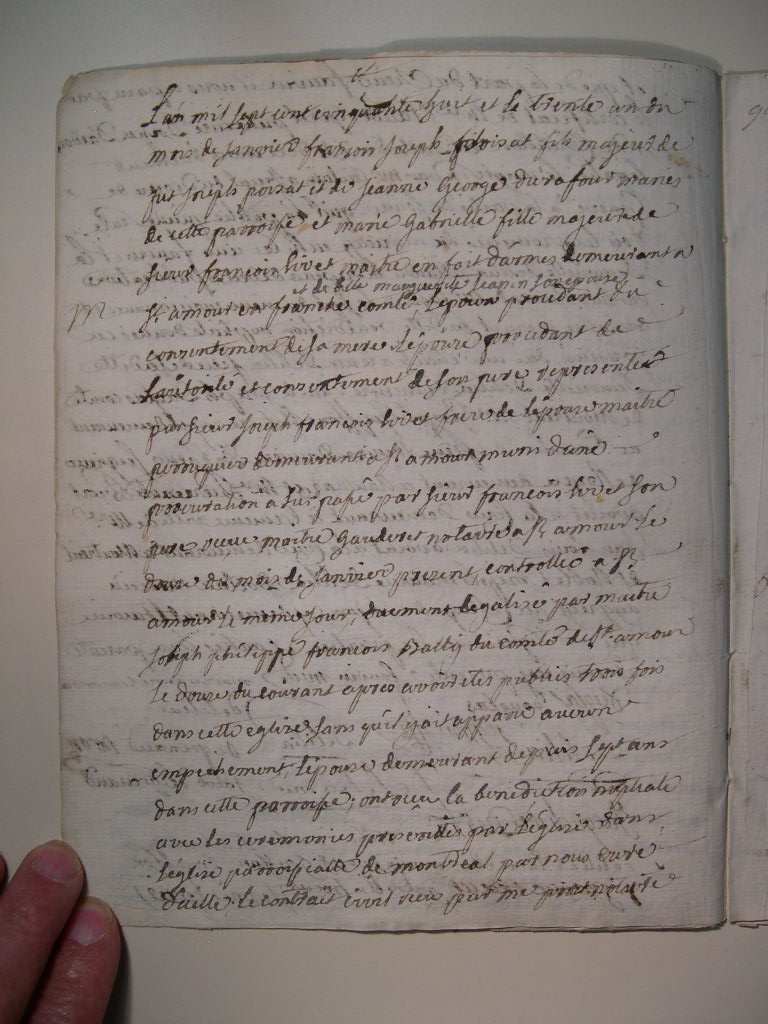 L'an mil sept cent cinquante huit et le trente un du
mois de Janvier françois Joseph poisat fils majeur de
fut Joseph poisat et de Jeanne George durafour maries
de cette parroisse et marie Gabrielle fille majeure de
sieur françois livet maitre en fait d'armes demeurant a
et de delle marguerite Jeanin son epouse
M
St amour en franche comté, L'epoux procedant du
consentement de sa mere L'épouse procedant de
Lautorité et consentement de son pere representé
par sieur Joseph françois livet frere de L'épouse maitre
perruquier demeurant a St amour muni d'une
procuration a lui passé par sieur françois livet son
pere receue maitre notaire a St amour le
douze du mois de Janvier present, controllé a St
amour le même jour, duement legalisé par maitre
Joseph philippe françois Bailly du comté de St amour
le douze du courant apres avoir étés publiés trois fois
dans cette eglise sans qu'il y ait apparu aucun
empêchement, L'épouse demeurant depuis sept ans
dans cette parroisse; ont receu la benediction nuptiale
avec les ceremonies prescrittes par L'église dans
L'église parroissialle de montreal par nous curé
d'icelle le contrat civil receu par me notaire